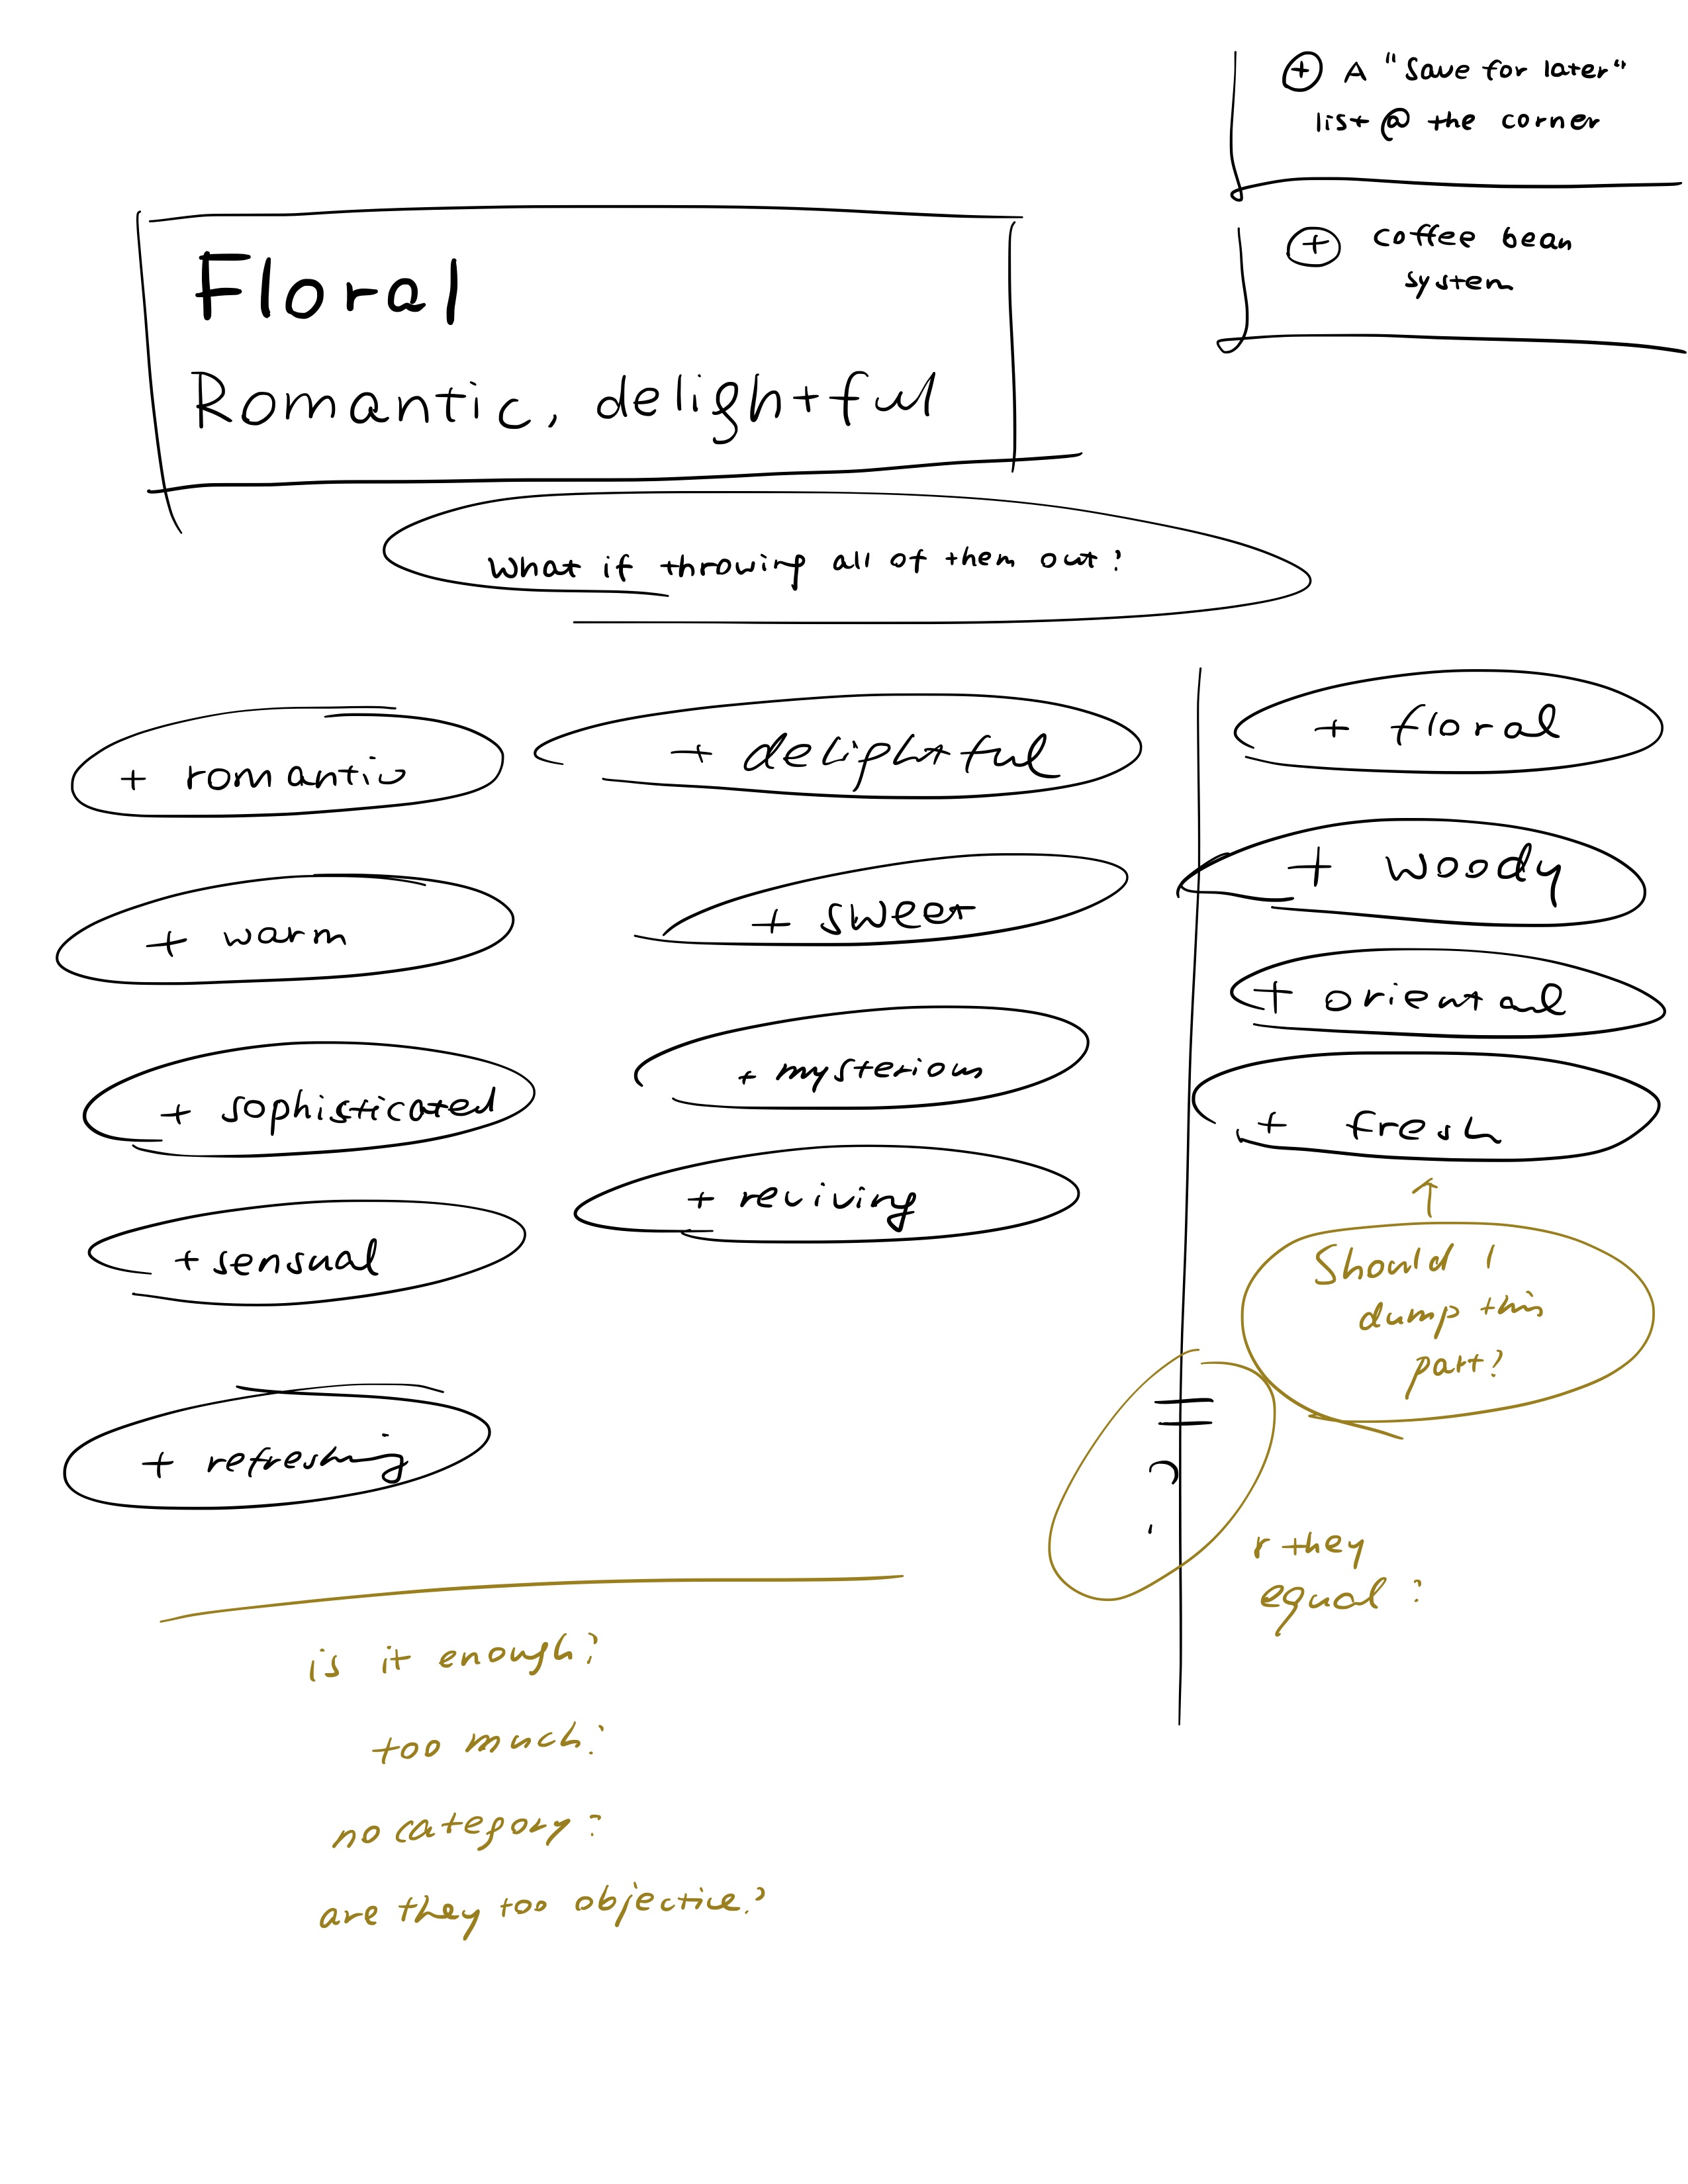 + A "Save for later"
list @ the corner
+ coffee bean
system
Floral
Romantic, delightful
What if throwing all of them out?
+ romantic
+ delightful
+ floral
+ warm
+ sweet
+ woody
+ sophisticated
+ mysterious
+ oriental
+ sensual
+ reviving
+ fresh
+ refreshing
↑
Should I
dump this
part?
= ?
r they
equal?
is it enough?
too much?
no category?
are they too objective?